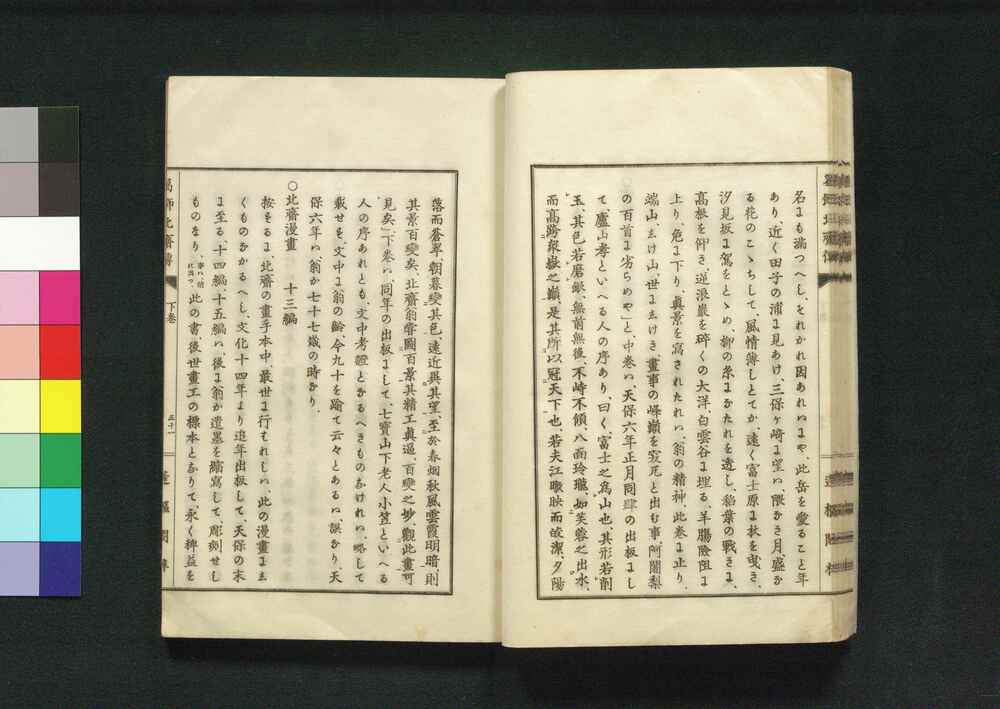 名にも満つへし、それかれ因あれはにや、此岳を愛ること年
あり、近く田子の浦に見あけ、三保ヶ崎に望み、隈なき月、盛な
る花のこゝちして、風情薄しとてか、遠く富士原に杖を曳き、
汐見坂に駕をとゝめ、柳の糸にかたれを透し、稲葉の戦きに、
高根を仰き、逆浪巖を砕くの大洋、白雲谷に埋る、羊膓險阻に
上り、危に下り、真景を寫されたれは、翁の精神此巻に止り、
端山、しけ山、世にしけき、畫事の嶧巓を
の百首に劣らめや」と、中巻は、天保六年正月同肆の出板にし
て廬山孝といへる人の序あり、曰く、富士之爲山也、其形若削
玉、其色若磨銀、無前無後、不峙不傾、八面玲瓏、如芙蓉之出水、
而高跨衆嶽之巓、是其所以冠天下也、若夫江暾映而皎潔、夕陽
落而蒼翠、朝暮變其色、遠近異其望、至於春烟秋風雲霞明暗、則
其景百變矣、北齋翁嘗圖百景、其精工眞逼、百變之妙、觀此畫可
見矣」下巻は、同年の出板にして、七寶山下老人小笠といへる
人の序あれとも、文中考證となるへきものなけれは、略して
載せす、文中に翁の齡今九十を踰て云々とあるは誤なり、天
保六年は翁か七十七歳の時なり、
○北齋漫畫　十三編
按するに、北齋の畫手本中、最世に行もれしは、此の漫畫にし
くものなかるへし、文化十四年より追年出板して、天保の末
に至る、十四編、十五編は、後に翁か遺墨を縮寫して、彫刻せし
ものなり、此の書、後世畫工の標本となりて、永く裨益を
葛飾北齋傳
下巻
三十一
蓬樞閣梓